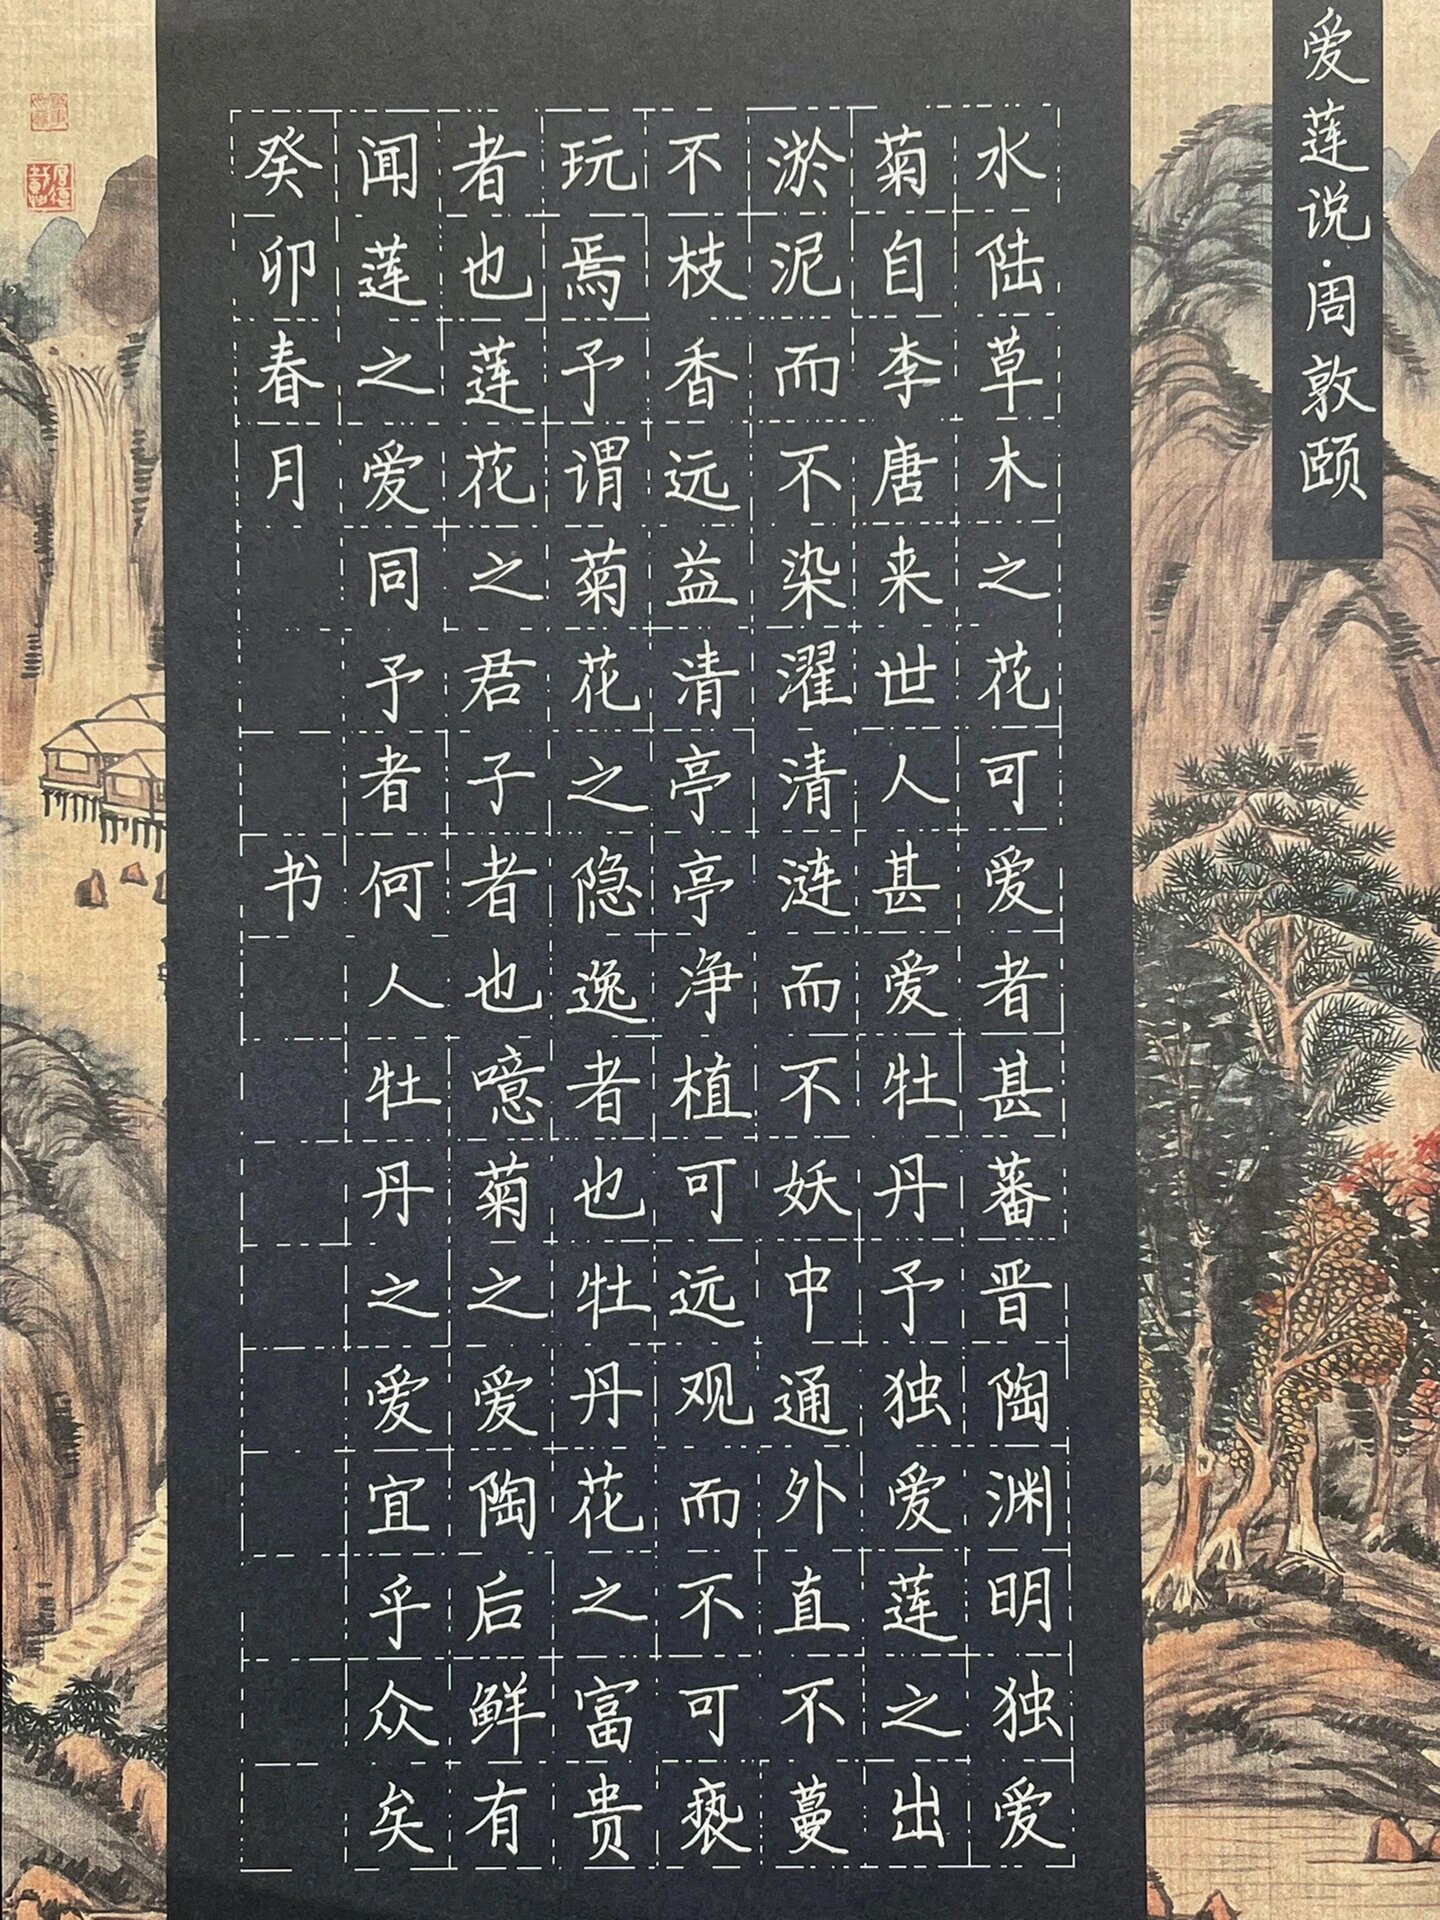 爱莲说·周敦颐
水陆草木之花可爱者甚蕃晋陶渊明独爱
菊自李唐来世人甚爱牡丹予独爱莲之出
淤泥而不染濯清涟而不妖中通外直不蔓
不枝香远益清亭亭净植可远观而不可亵
玩焉予谓菊花之隐逸者也牡丹花之富贵
者也莲花之君子者也噫菊之爱陶后鲜有
闻莲之爱同予者何人牡丹之爱宜乎众矣
癸卯春月 书